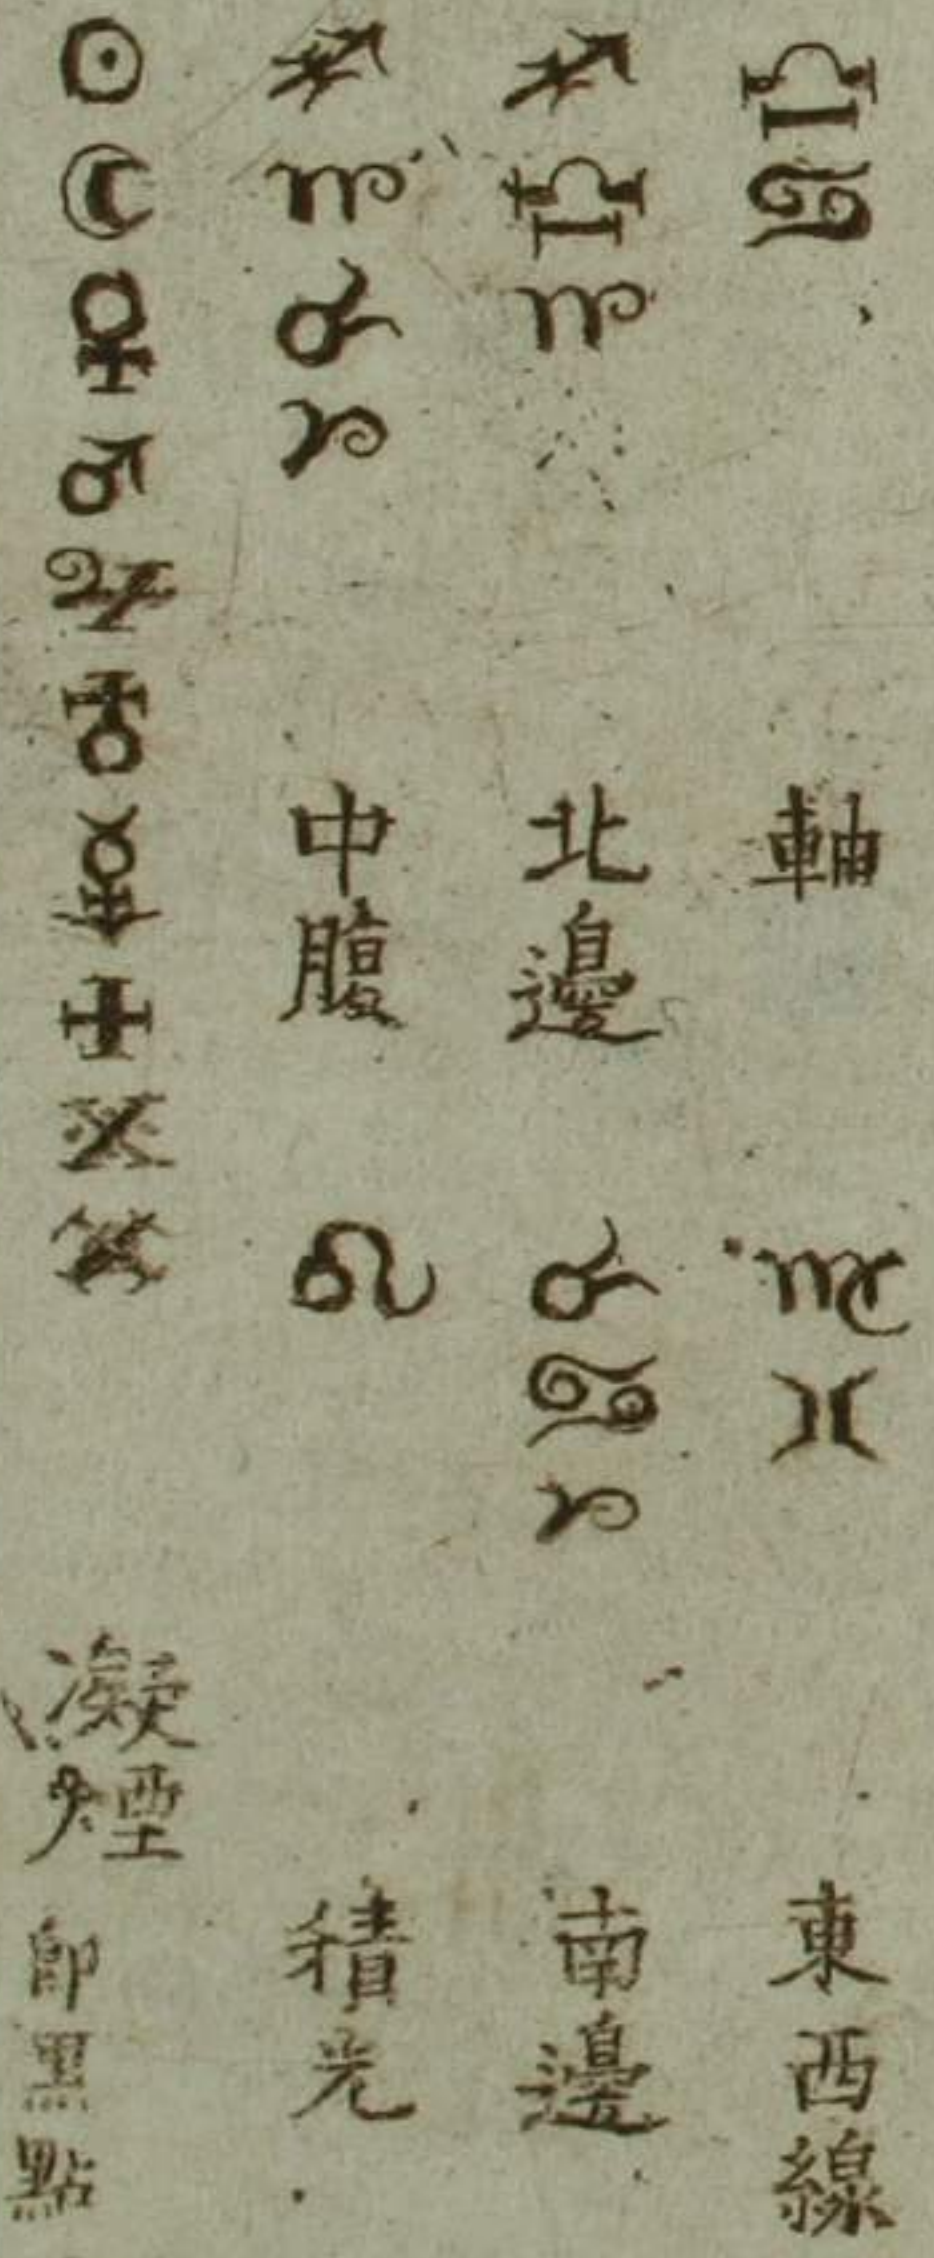 ♎♋ 軸 ♍♓ 東西線
♐♎♏ 北邊 ♉♋♈ 南邊
♐♏♉♈ 中腹 ♌ 積光
☉☽♀♂♃♁☿ 凝煙 即黑點